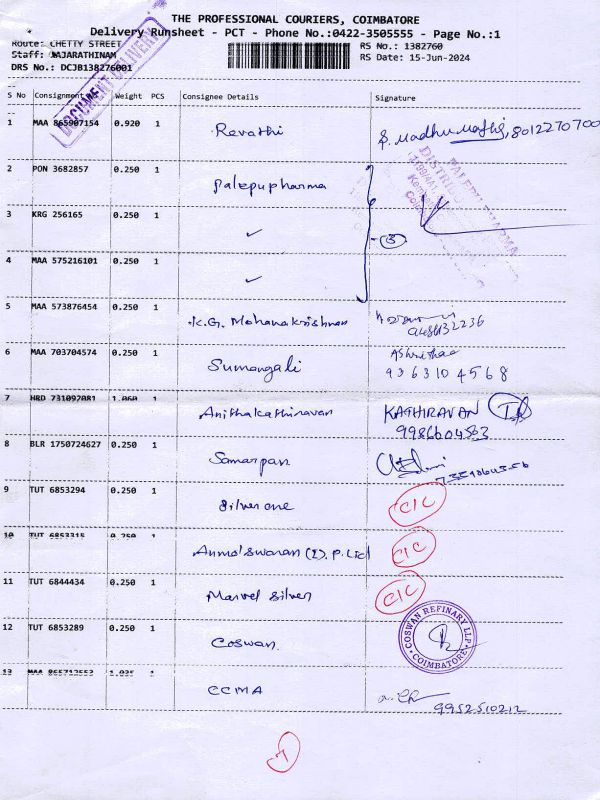 THE PROFESSIONAL COURIERS, COIMBATORE
Delivery Runsheet - PCT - Phone No.:0422-3505555 - Page No.:1
Route: CHETTY STREET
RS No.: 1382760
Staff: RAJARATHINAM
RS Date: 15-Jun-2024
DRS No.: DCJB138276001
DOCUMENT DELIVERY
S No Consignment Weight PCS Consignee Details Signature
1 MAA 865907154 0.920 1 Revathi S. Madhumathi, 8012270700
2 PON 3682857 0.250 1 Palepupharma
PALEPU PHARMA
3 KRG 256165 0.250 1 ✓ (3)
4 MAA 575216101 0.250 1 ✓
5 MAA 573876454 0.250 1 K.G. Mohanakrishnan
6 MAA 703704574 0.250 1 Sumangali
9363104568
7 HRD 731092081 1.060 1 Anithakathiravan KATHIRAVAN
9986604583
8 BLR 1750724627 0.250 1 Samarpan
9 TUT 6853294 0.250 1 Silverone C/C
10 TUT 6853315 0.250 1 Anmolswaran (I). P. Ltd C/C
11 TUT 6844434 0.250 1 Marvel Silver C/C
12 TUT 6853289 0.250 1 Coswan
COSWAN REFINARY LLP
COIMBATORE
13 MAA 865712553 1.035 1 CCMA
9952510212
7